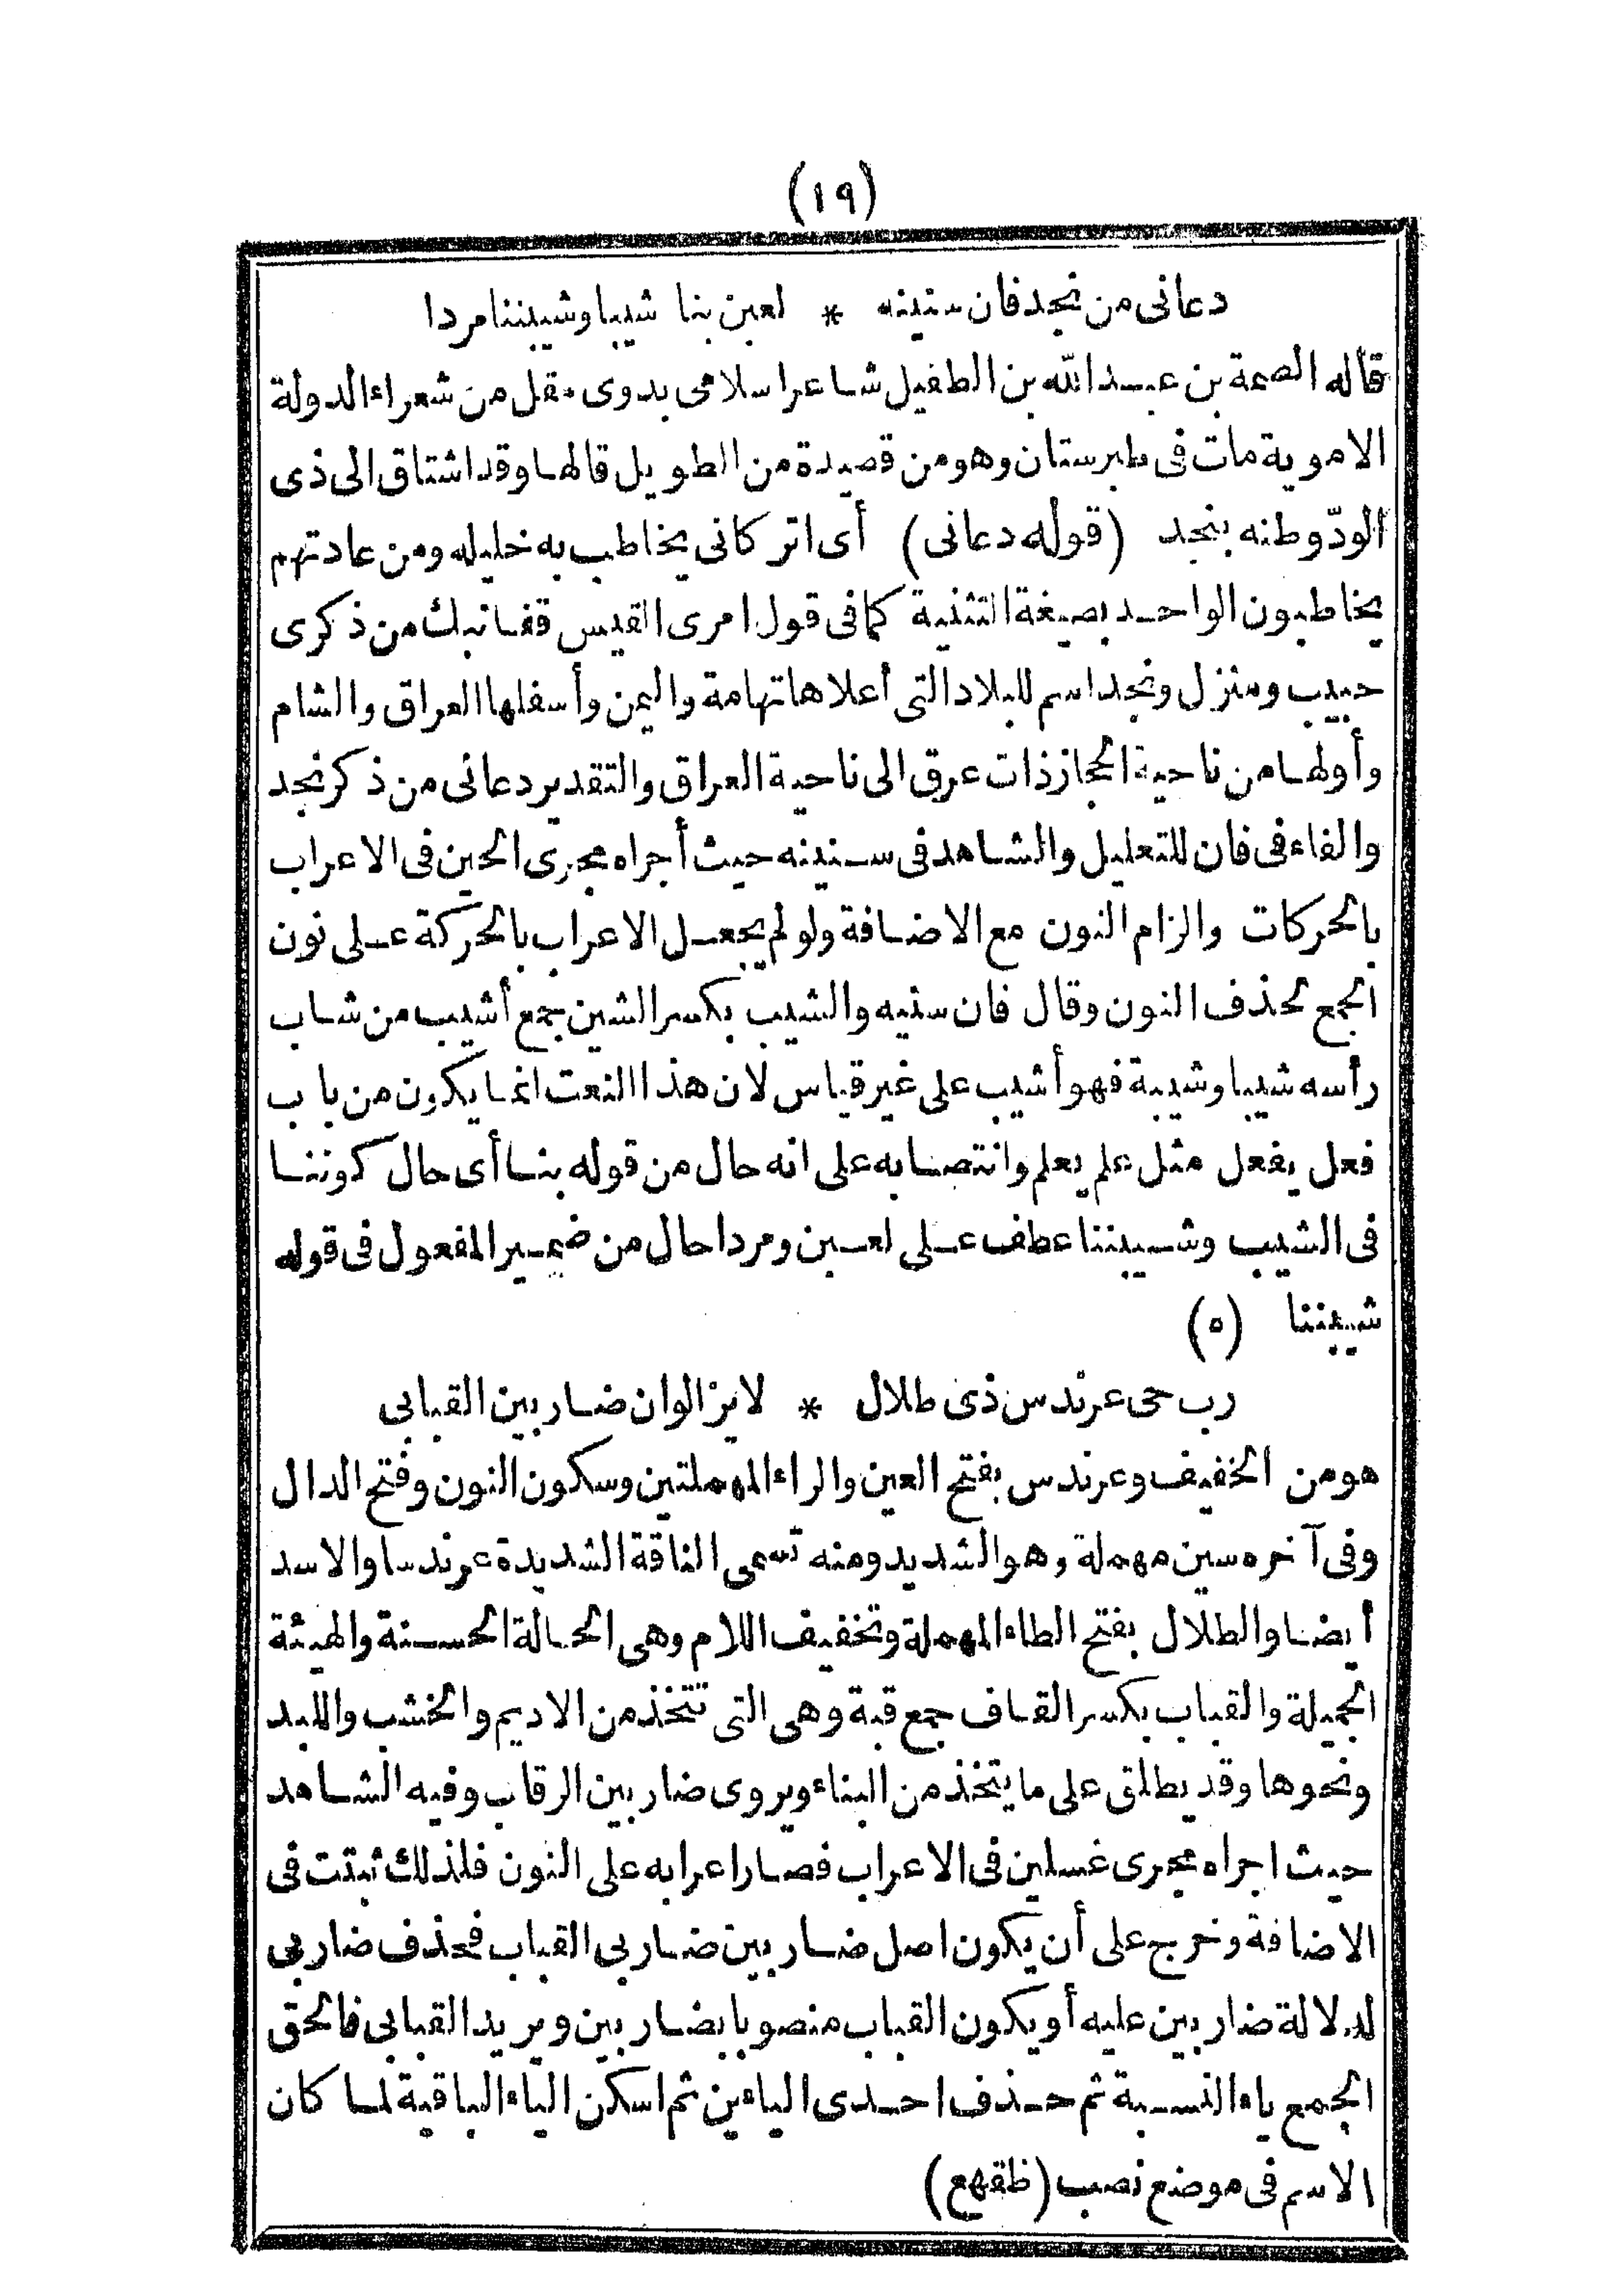 (١٩)
دعانى من نجد فان سنينه * لعبن بنا شيبا وشيبننا مردا
قاله الصمة بن عبد الله بن الطفيل شاعر اسلامى بدوى مقل من شعراء الدولة
الاموية مات فى طبرستان وهو من قصيدة من الطويل قالها وقد اشتاق الى ذى
الودّ وطنه بنجد (قوله دعانى) أى اتركانى يخاطب به خليله ومن عادتهم
يخاطبون الواحد بصيغة التثنية كما فى قول امرى القيس قفا نبك من ذكرى
حبيب ومنزل ونجد اسم للبلاد التى أعلاها تهامة واليمن وأسفلها العراق والشام
وأولها من ناحية الحجاز ذات عرق الى ناحية العراق والتقدير دعانى من ذكر نجد
والفاء فى فان للتعليل والشاهد فى سنينه حيث أجراه مجرى الحين فى الاعراب
بالحركات والزام النون مع الاضافة ولو لم يجعل الاعراب بالحركة على نون
الجمع لحذف النون وقال فان سنيه والشيب بكسر الشين جمع أشيب من شاب
رأسه شيبا وشيبة فهو أشيب على غير قياس لان هذا النعت انما يكون من باب
فعل يفعل مثل علم يعلم وانتصابه على انه حال من قوله بنا أى حال كوننا
فى الشيب وشيبننا عطف على لعبن ومردا حال من ضمير المفعول فى قوله
شيبننا (٥)
رب حى عرندس ذى طلال * لا يزالوان ضاربين القبابى
هو من الخفيف وعرندس بفتح العين والراء المهملتين وسكون النون وفتح الدال
وفى آخره سين مهملة وهو الشديد ومنه تسمى الناقة الشديدة عرندسا والاسد
أيضا والطلال بفتح الطاء المهملة وتخفيف اللام وهى الحالة الحسنة والهيئة
الجميلة والقباب بكسر القاف جمع قبة وهى التى تتخذ من الاديم والخشب واللبد
ونحوها وقد يطلق على ما يتخذ من البناء ويروى ضاربين الرقاب وفيه الشاهد
حيث اجراه مجرى غسلين فى الاعراب فصار اعرابه على النون فلذلك ثبتت فى
الاضافة وخرج على أن يكون اصل ضاربين ضاربى القباب فحذف ضاربى
لدلالة ضاربين عليه أو يكون القباب منصوبا بضاربين ويريد القبابى فالحق
الجمع ياء النسبة ثم حذف احدى الياءين ثم اسكن الياء الباقية لما كان
الاسم فى موضع نصب (ظقهع)